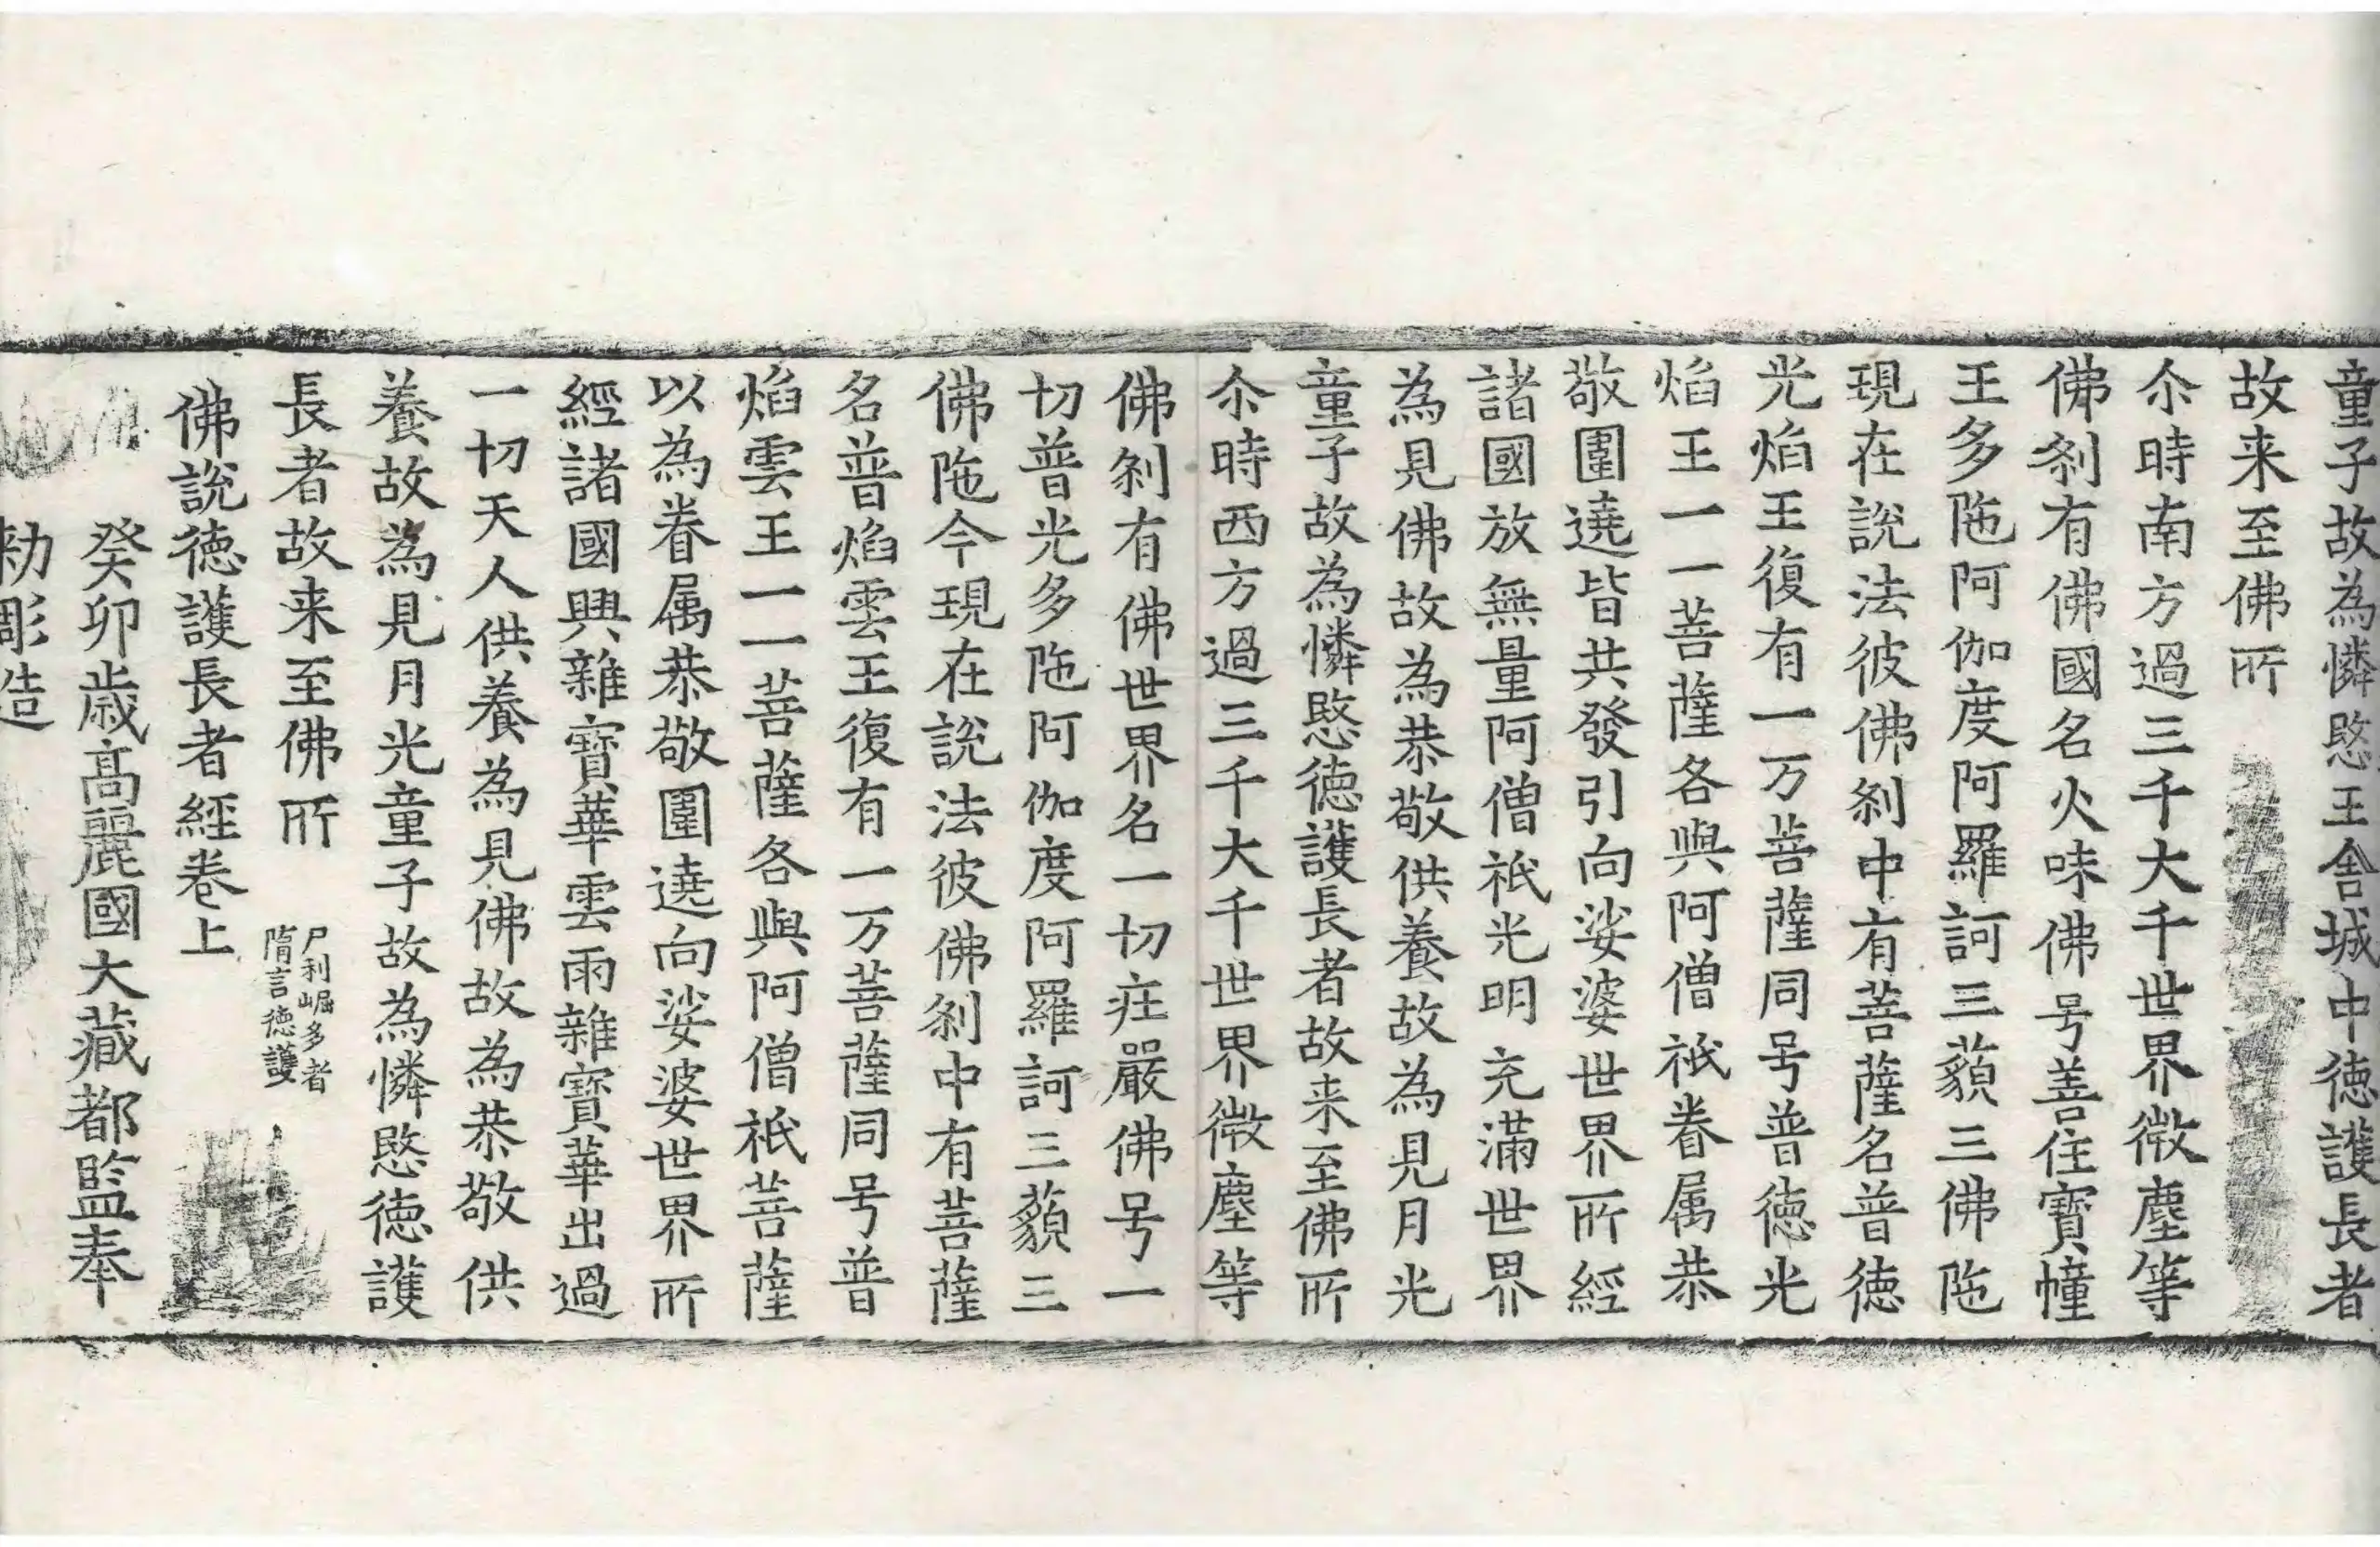 童子故為憐愍王舎城中徳護長者
故来至佛所
尒時南方過三千大千世界微塵等
佛刹有佛國名火味佛号善住寶幢
王多陁阿伽度阿羅訶三藐三佛陁
現在說法彼佛刹中有菩薩名普徳
光焰王復有一万菩薩同号普徳光
焰王一一菩薩各與阿僧祇眷属恭
敬圍遶皆共發引向娑婆世界所經
諸國放無量阿僧祇光明充滿世界
為見佛故為恭敬供養故為見月光
童子故為憐愍徳護長者故来至佛所
尒時西方過三千大千世界微塵等
佛刹有佛世界名一切莊嚴佛号一
切普光多陁阿伽度阿羅訶三藐三
佛陁今現在說法彼佛刹中有菩薩
名普焰雲王復有一万菩薩同号普
焰雲王一一菩薩各與阿僧祇菩薩
以為眷属恭敬圍遶向娑婆世界所
經諸國興雜寶華雲雨雜寶華出過
一切天人供養為見佛故為恭敬供
養故為見月光童子故為憐愍徳護
長者故来至佛所
尸利崛多者
隋言徳護
佛說徳護長者經卷上
癸卯歳髙麗國大藏都監奉
勑彫造